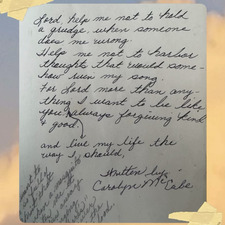 Lord, help me not to hold
a grudge when someone
does me wrong.
Help me not to harbor
thoughts that would some-
how ruin my song.
For Lord more than any-
thing I want to be like
you, always forgiving kind
& good.
and live my life the
way I should,
Written by -
Carolyn McCabe